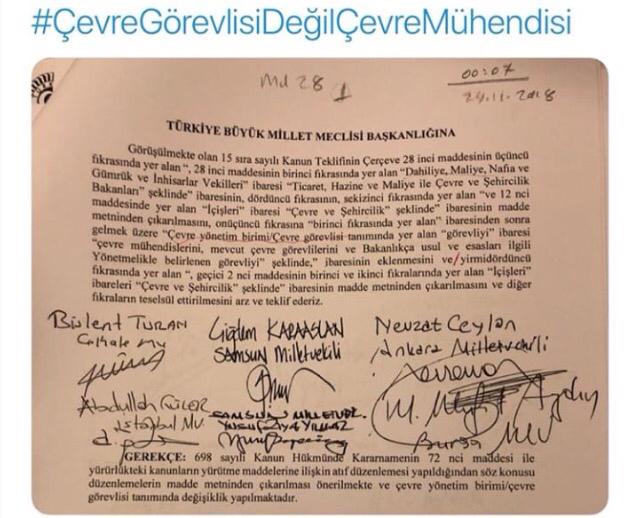 #ÇevreGörevlisiDeğilÇevreMühendisi
Md 28 1
00:07
24.11.2018
TÜRKİYE BÜYÜK MİLLET MECLİSİ BAŞKANLIĞINA
Görüşülmekte olan 15 sıra sayılı Kanun Teklifinin Çerçeve 28 inci maddesinin üçüncü
fıkrasında yer alan “, 28 inci maddesinin birinci fıkrasında yer alan “Dahiliye, Maliye, Nafıa ve
Gümrük ve İnhisarlar Vekilleri” ibaresi “Ticaret, Hazine ve Maliye ile Çevre ve Şehircilik
Bakanları” şeklinde” ibaresinin, dördüncü fıkrasının, sekizinci fıkrasında yer alan “ve 12 nci
maddesinde yer alan “İçişleri” ibaresi “Çevre ve Şehircilik” şeklinde” ibaresinin madde
metninden çıkarılmasını, onüçüncü fıkrasına “birinci fıkrasında yer alan” ibaresinden sonra
gelmek üzere “Çevre yönetim birimi/Çevre görevlisi tanımında yer alan “görevliyi” ibaresi
“çevre mühendislerini, mevcut çevre görevlilerini ve Bakanlıkça usul ve esasları ilgili
Yönetmelikle belirlenen görevliyi” şeklinde,” ibaresinin eklenmesini ve/yirmidördüncü
fıkrasında yer alan “, geçici 2 nci maddesinin birinci ve ikinci fıkralarında yer alan “İçişleri”
ibareleri “Çevre ve Şehircilik” şeklinde” ibaresinin madde metninden çıkarılmasını ve diğer
fıkraların teselsül ettirilmesini arz ve teklif ederiz.
Bülent TURAN Çiğdem KARAASLAN Nevzat Ceylan
Çanakkale Mv SAMSUN Milletvekili Ankara Milletvekili
Abdullah GÜLER SAMSUN MİLLETVEK.
İstanbul Mv. YUSUF ZİYA YILMAZ
Bursa
GEREKÇE: 698 sayılı Kanun Hükmünde Kararnamenin 72 nci maddesi ile
yürürlükteki kanunların yürütme maddelerine ilişkin atıf düzenlemesi yapıldığından söz konusu
düzenlemelerin madde metninden çıkarılması önerilmekte ve çevre yönetim birimi/çevre
görevlisi tanımında değişiklik yapılmaktadır.